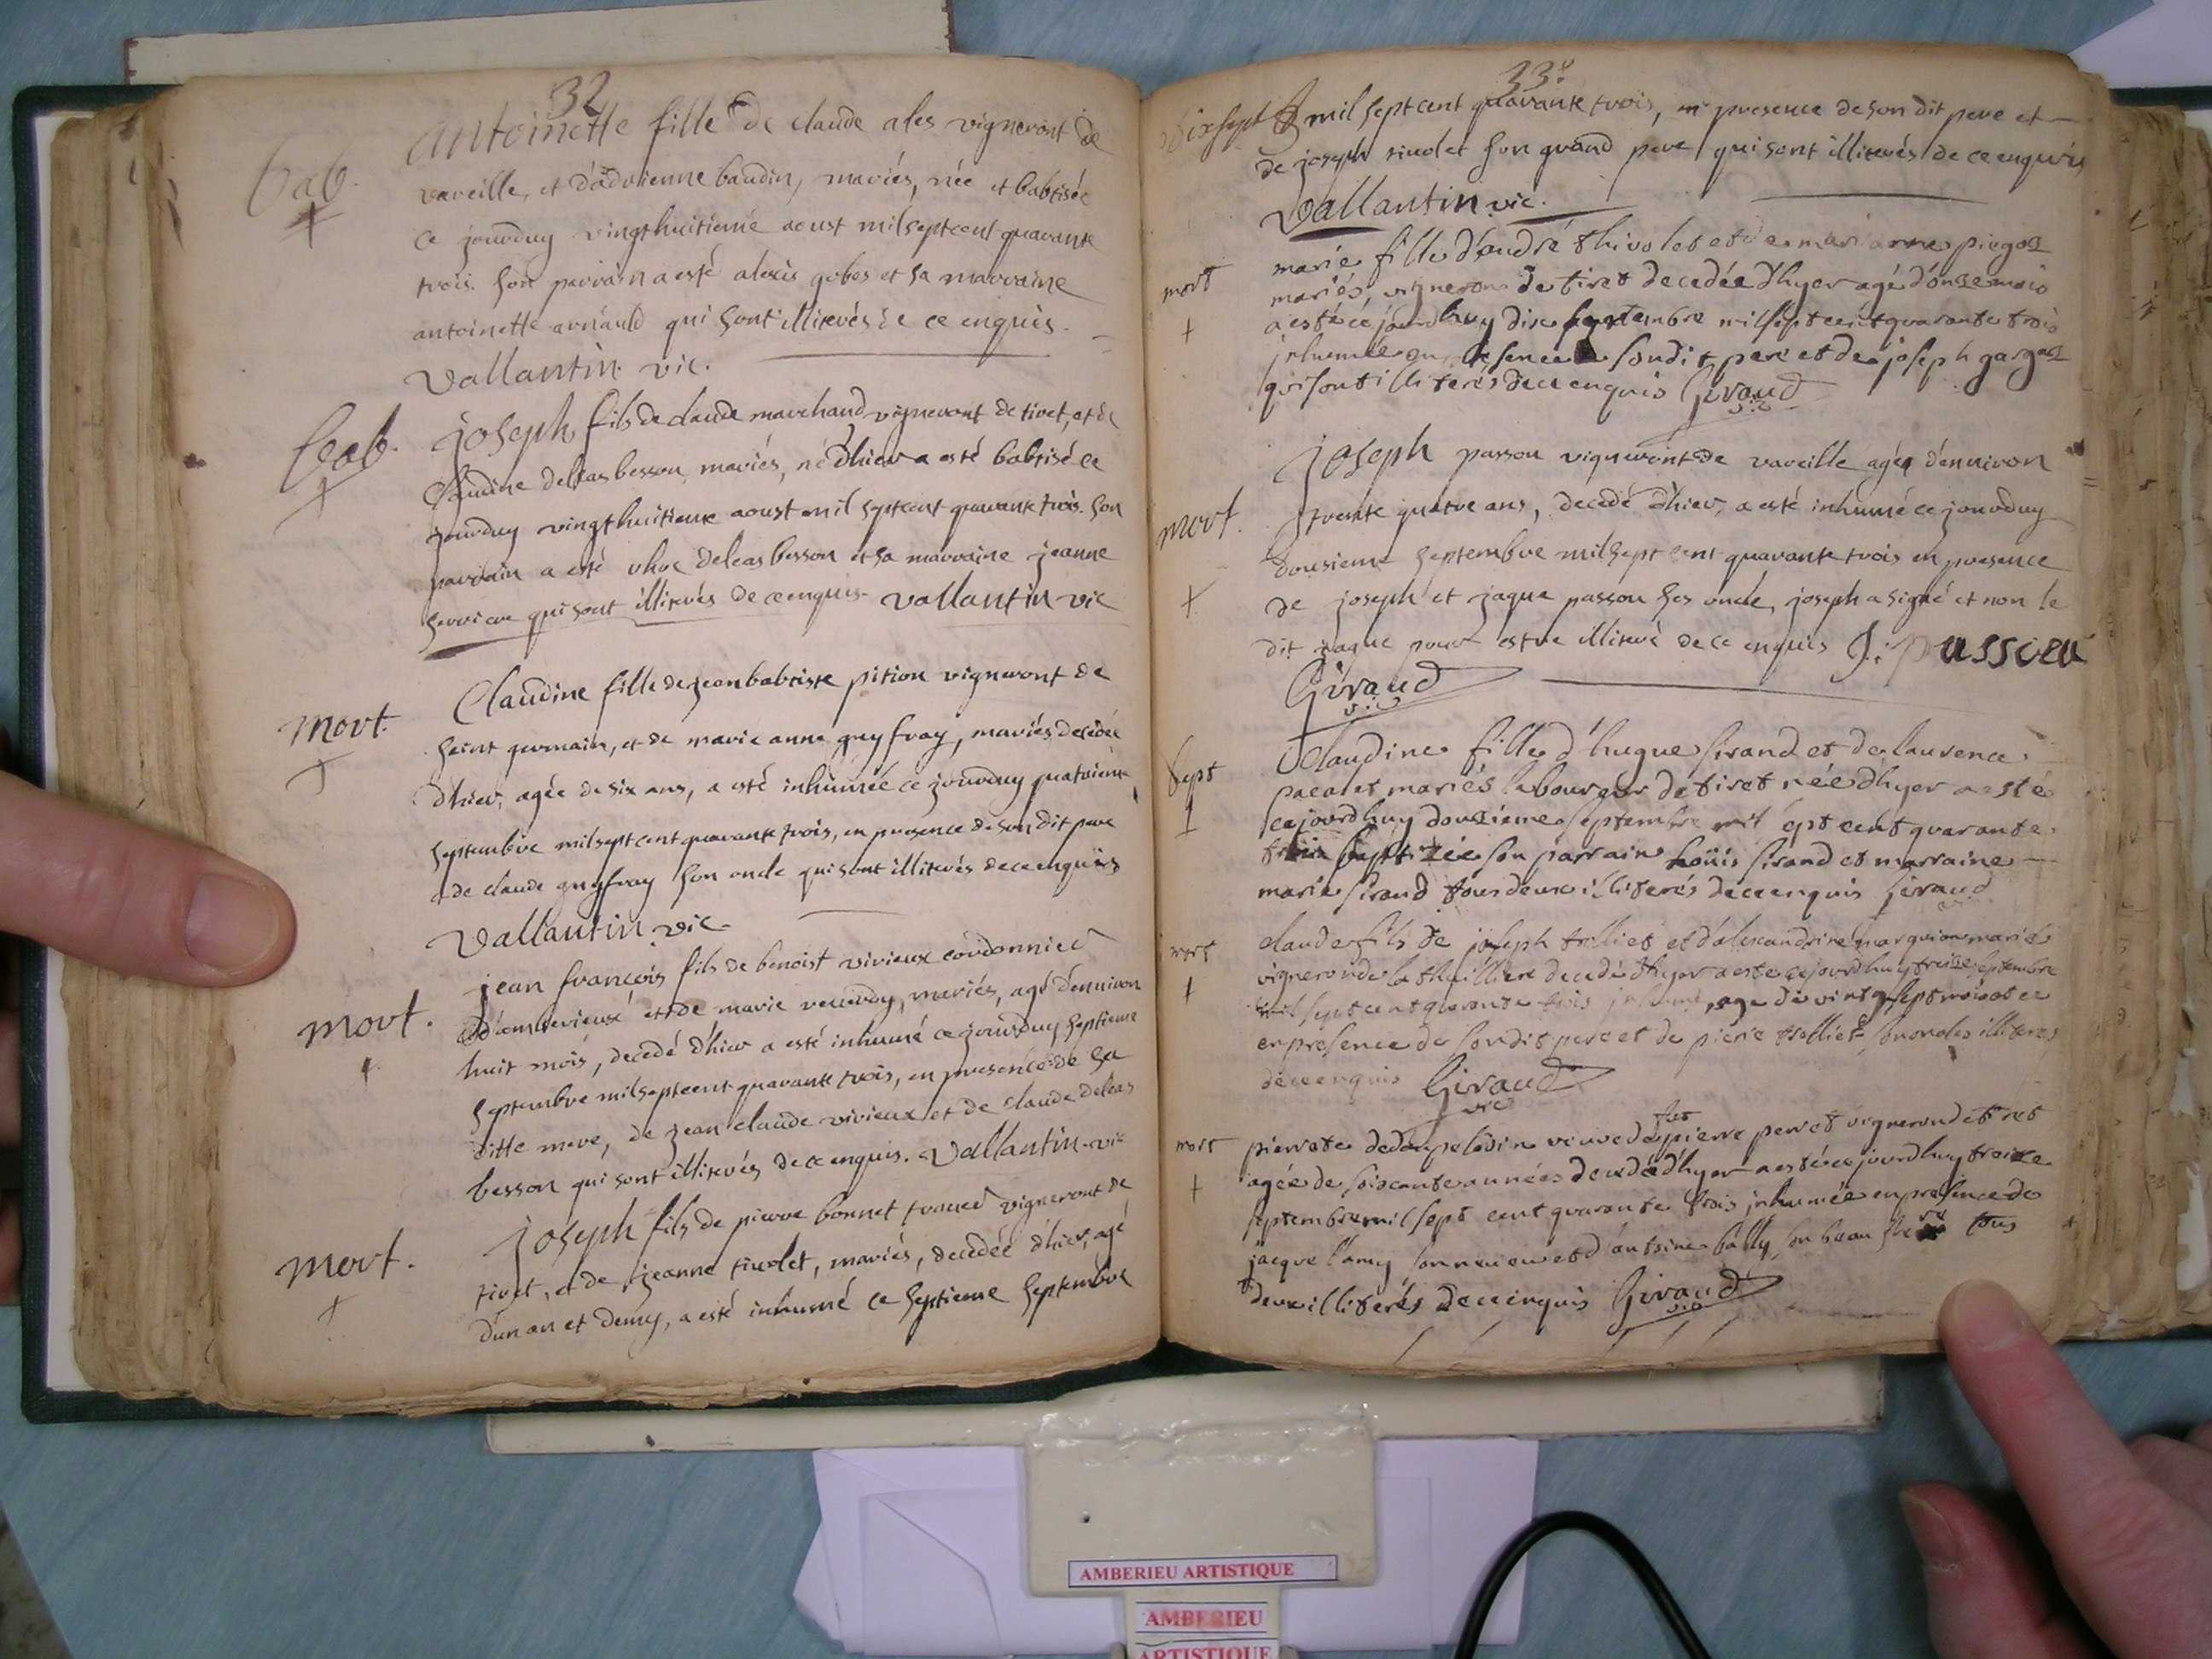 32
bab.
antoinette fille de claude ales vigneront de
vareille, et d'adrienne baudin, mariés, née et babtisée
ce jourduy vingthuitieme aoust mil sept cent quarante
trois. son parrain a esté alexis gobos et sa marraine
antoinette arnauld qui sont illiterés de ce enquis.
Vallantin. vic.
bab.
joseph, fils de claude marchand vigneront de tiret, et de
Claudine deleas besson, mariés, né d'hier a esté babtisé ce
jourduy vingthuitieme aoust mil sept cent quarante trois. son
parrain a esté deleas besson et sa marraine jeanne
qui sont illiterés de ce enquis. Vallantin vic
mort.
Claudine fille de jean babtiste pition vigneront de
saint germain, et de marie anne guyfray, mariés decedée
d'hier, agée de six ans, a esté inhumée ce jourduy quatrieme
septembre mil sept cent quarante trois, en presence de son dit pere
et de claude guyfray son oncle qui sont illiterés de ce enquis
Vallantin vic.
mort.
jean françois fils de benoist vivieux cordonnier
d'amberieux et de marie mariés, agé d'enuiron
huit mois, decedé d'hier a esté inhumé ce jourduy septieme
septembre mil sept cent quarante trois, en presence de sa
ditte mere, de jean claude vivieux et de claude deleas
besson qui sont illiterés de ce enquis. Vallantin. vic
mort.
joseph fils de pierre bonnet vigneront de
tiret, et de jeanne tiuolet, mariés, decedée d'hier, agé
d'un an et demy, a esté inhumé ce septieme septembre
33e
mil sept cent quarante trois, en presence de son dit pere et
de joseph son grand pere qui sont illiterés de ce enquis
Vallantin vic.
mort
marie fille d'andré thiuolet et de marianne piegoz
mariés, vigneron de tiret decedée d'hyer agé d'onze mois
a esté ce jourdhuy dix septembre mil sept cent quarante trois
inhumée en presence de son dit pere et de joseph gargoz
qui sont illiterés de ce enquis Giraud
vic
mort.
joseph passou vigneront de vareille agé d'enuiron
trente quatre ans, decedé d'hier, a esté inhumé ce jourduy
dousieme septembre mil sept cent quarante trois en presence
de joseph et jaque passou ses oncle, joseph a signé et non le
dit jaque pour estre illiteré de ce enquis J. passou
Giraud
vic
bapt
Claudine fille d'hugue sirand et de laurence
pacalet mariés laboureur de tiret née d'hyer a esté
cejourdhuy douzieme septembre mil sept cent quarante
trois baptizée son parrain Loüis sirand et marraine
marie sirand tous deux illiterés de ce enquis Giraud
mort
claude fils de joseph trilliet et d'alexandrine marquion mariés
vigneron de la thuilliere decedé d'hyer a esté cejourdhuy treize septembre
mil sept cent quarante trois inhumé, age de vingt sept mois et ce
en presence de son dit pere et de pierre trelliet, son oncle illiteres
de ce enquis Giraud
vic
mort
pierrete veuve de fut pierre perret vigneron de tiret
agée de soixante années decedée d'hyer a esté ce jourdhuy treize
septembre mil sept cent quarante trois inhumée en presence de
jacque lamy son neueu et d'antoine bally son beau frere tous
deux illiterés de ce enquis Giraud
vic
AMBERIEU ARTISTIQUE
AMBERIEU
ARTISTIQUE